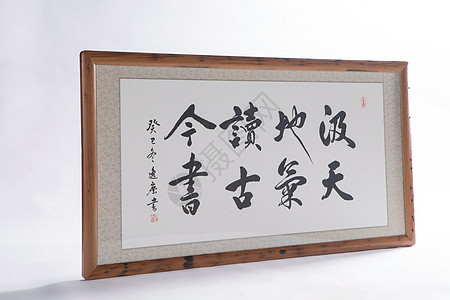 汲天
地氣
讀古
今書
癸巳冬書